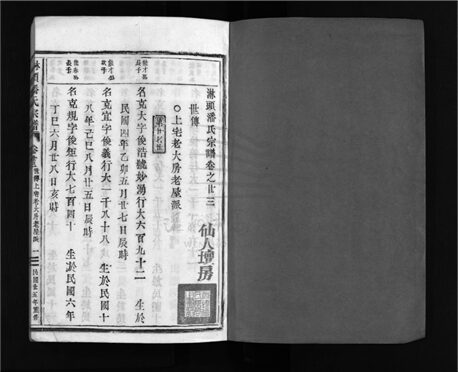 淋頭潘氏宗譜卷之廿三
仙人壇房
世傳
○上宅老大房老屋派
名克大字俊浩號妙湧行大六百九十二 生於
民國四年乙卯五月廿七日辰時
名克宜字俊義行大一千八十八 生於民國十
八年己巳八月廿五日辰時
名克規字俊矩行大七百四十 生於民國六年
丁巳六月廿八日亥時
淋頭潘氏宗譜
世傳上宅老大房老屋派 一 民國廿五年重修